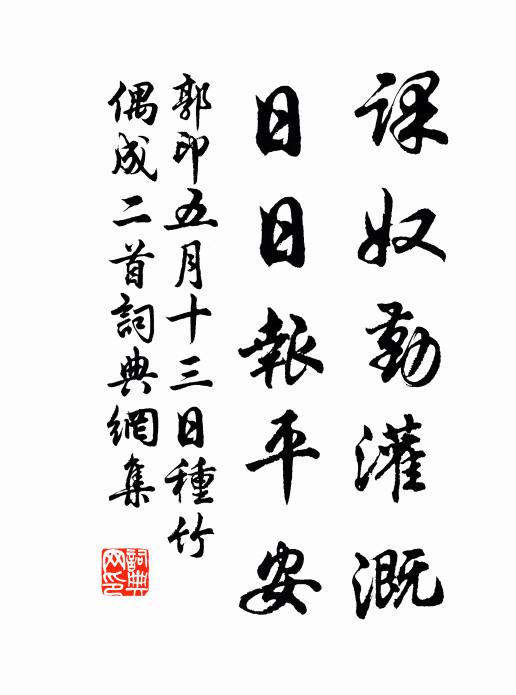 課奴勤灌溉
日日報平安
郭印五月十三日種竹
偶成二首詞典網集
詞典
网印